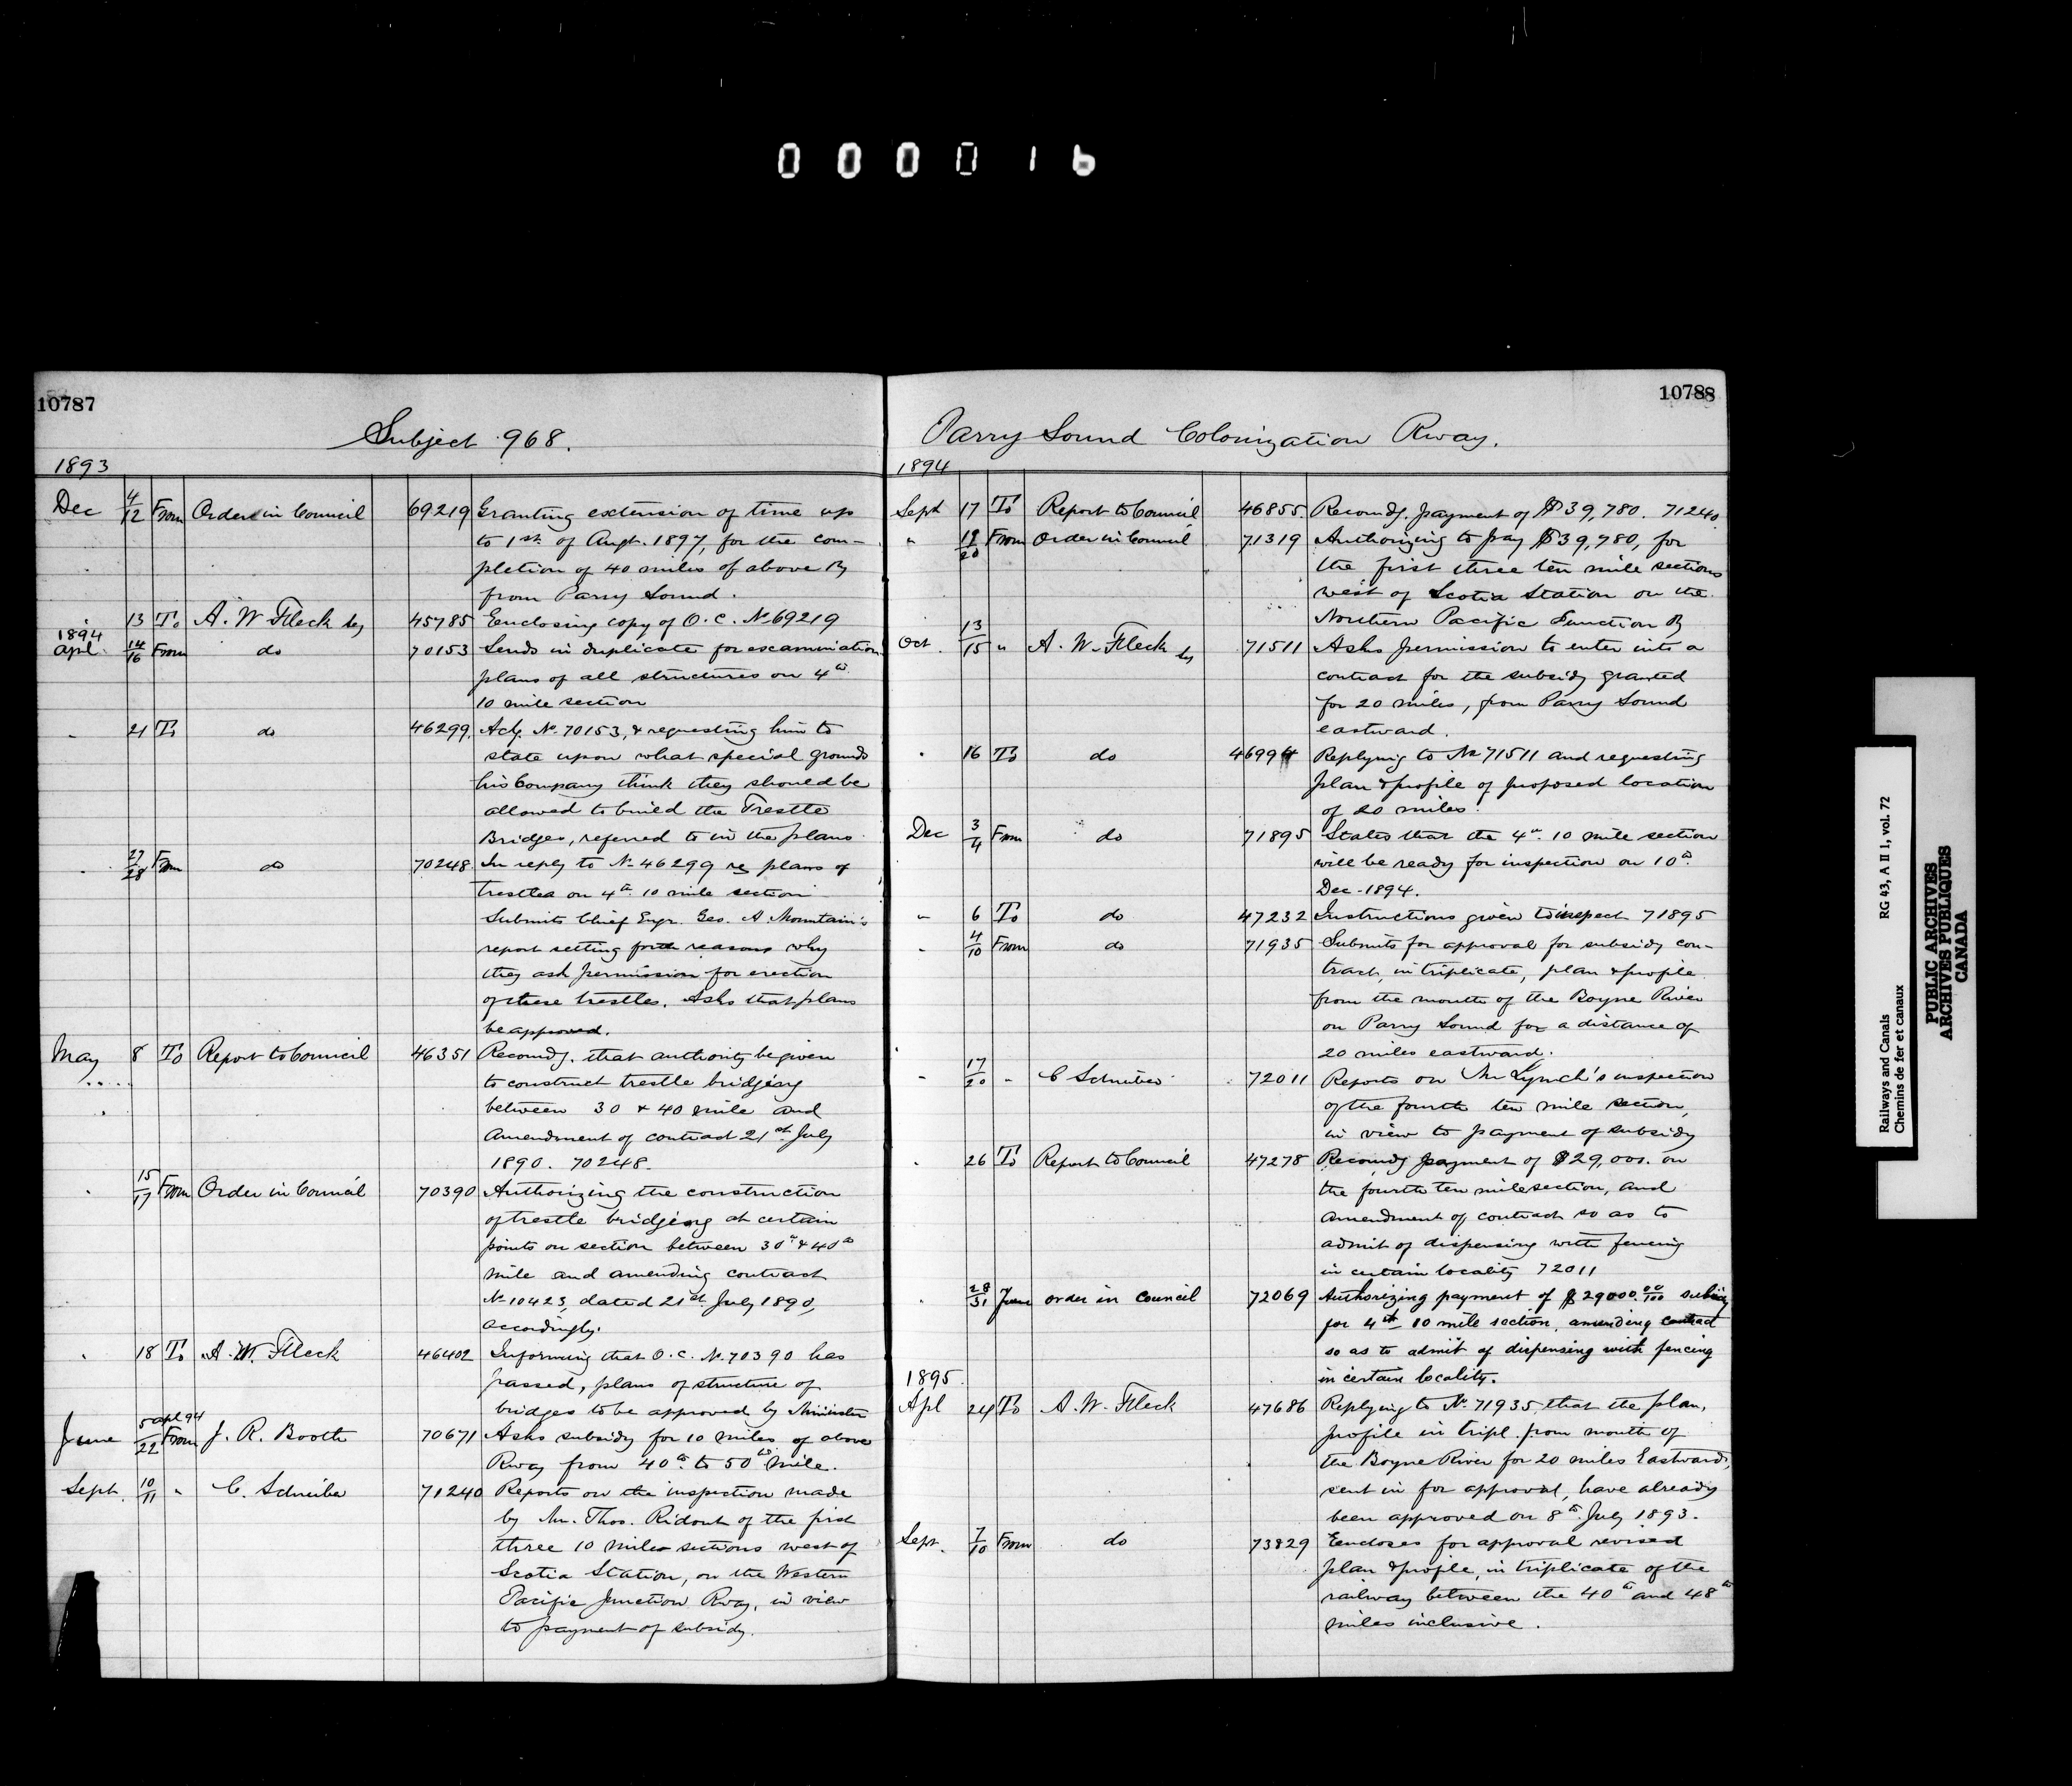 000016
10787
Subject 968.
1893
Dec 4/12 From Order in Council 69219 Granting extension of time up
to 1st of Augt. 1897, for the com-
pletion of 40 miles of above Ry
from Parry Sound.
" 13 To A. W Fleck Sy 45785 Enclosing copy of O.C. No 69219
1894
Apl. 14/16 From do 70153 Sends in duplicate for examination
plans of all structures on 4th
10 mile section
" 21 To do 46299. Ackg. No 70153, & requesting him to
state upon what special grounds
his Company think they should be
allowed to build the Trestle
Bridges, referred to in the plans
" 27/28 From do 70248 In reply to No 46299 re plans of
trestles on 4th 10 mile section
Submits Chief Engr. Geo. A. Mountain's
report setting forth reasons why
they ask permission for erection
of these trestles. Asks that plans
be approved.
May 8 To Report to Council 46351 Recomdg. that authority be given
to construct trestle bridging
between 30 & 40 mile and
Amendment of contract 21st July
1890. 70248.
" 15/17 From Order in Council 70390 Authorizing the construction
of trestle bridging at certain
points on section between 30th & 40th
mile and amending contract
No 10423, dated 21st July 1890,
accordingly.
" 18 To A. W. Fleck 46402 Informing that O.C. No. 70390 has
passed, plans of structure of
bridges to be approved by Minister
June 5 apl 94/22 From J. R. Booth 70671 Asks subsidy for 10 miles of above
Rway from 40th to 50th mile.
Sept. 10/11 " C. Schreiber 71240 Reports on the inspection made
by Mr. Thos. Ridout of the first
three 10 miles sections west of
Scotia Station, on the Western
Pacific Junction Rway, in view
to payment of subsidy.
10788
Parry Sound Colonization Rway.
1894
Sept 17 To Report to Council 46855. Recomdg. payment of $39,780. 71240.
" 19/20 From Order in Council 71319 Authorizing to pay $39,780, for
the first three ten mile sections
west of Scotia Station on the
Northern Pacific Junction Ry
Oct. 13/15 " A. W. Fleck Sy 71511 Asks permission to enter into a
contract for the subsidy granted
for 20 miles, from Parry Sound
eastward.
" 16 To do 46994 Replying to No 71511 and requesting
plan & profile of proposed location
of 20 miles.
Dec 3/4 From do 71895 States that the 4th 10 mile section
will be ready for inspection on 10th
Dec. 1894.
" 6 To do 47232 Instructions given to inspect 71895
" 4/10 From do 71935 Submits for approval for subsidy con-
tract, in triplicate, plan & profile
from the mouth of the Boyne River
on Parry Sound for a distance of
20 miles eastward.
" 17/20 " C Schreiber 72011 Reports on Mr Lynch's inspection
of the fourth ten mile section,
in view to payment of subsidy
" 26 To Report to Council 47278 Recomdg payment of $29,000. on
the fourth ten mile section, and
amendment of contract so as to
admit of dispensing with fencing
in certain locality 72011
" 28/31 From order in council 72069 Authorizing payment of $29000.00/100 subsidy
for 4th 10 mile section, amending contract
so as to admit of dispensing with fencing
in certain locality.
1895
Apl 24 To A. W. Fleck 47686 Replying to No. 71935, that the plan,
profile in tripl. from mouth of
the Boyne River for 20 miles Eastward,
sent in for approval, have already
been approved on 8th July 1893.
Sept. 7/10 From do 73829 Encloses for approval revised
plan & profile, in triplicate of the
railway between the 40th and 48th
miles inclusive.
Railways and Canals RG 43, A II 1, vol. 72
Chemins de fer et canaux
PUBLIC ARCHIVES
ARCHIVES PUBLIQUES
CANADA